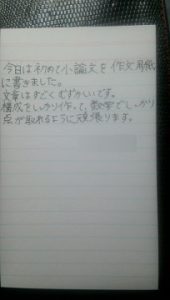 今日は初めて小論文を作文用紙
に書きました。
文章はすごくむずかしいです。
構成をしっかり作って、数学でしっかり
点が取れるように頑張ります。